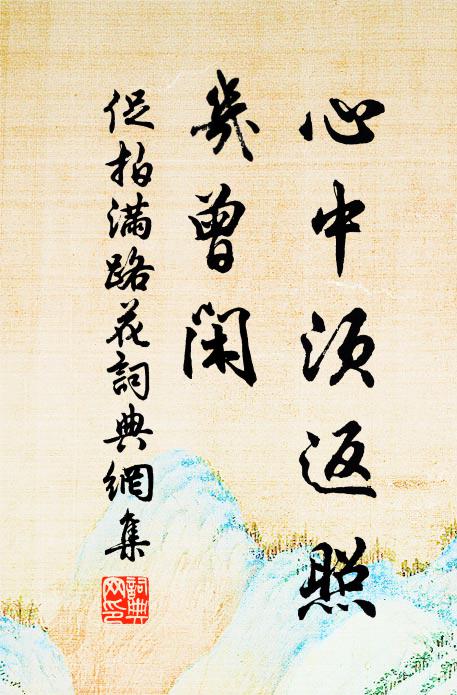 心中須返照
幾曾閑
促拍滿路花詞典網集
詞典網印